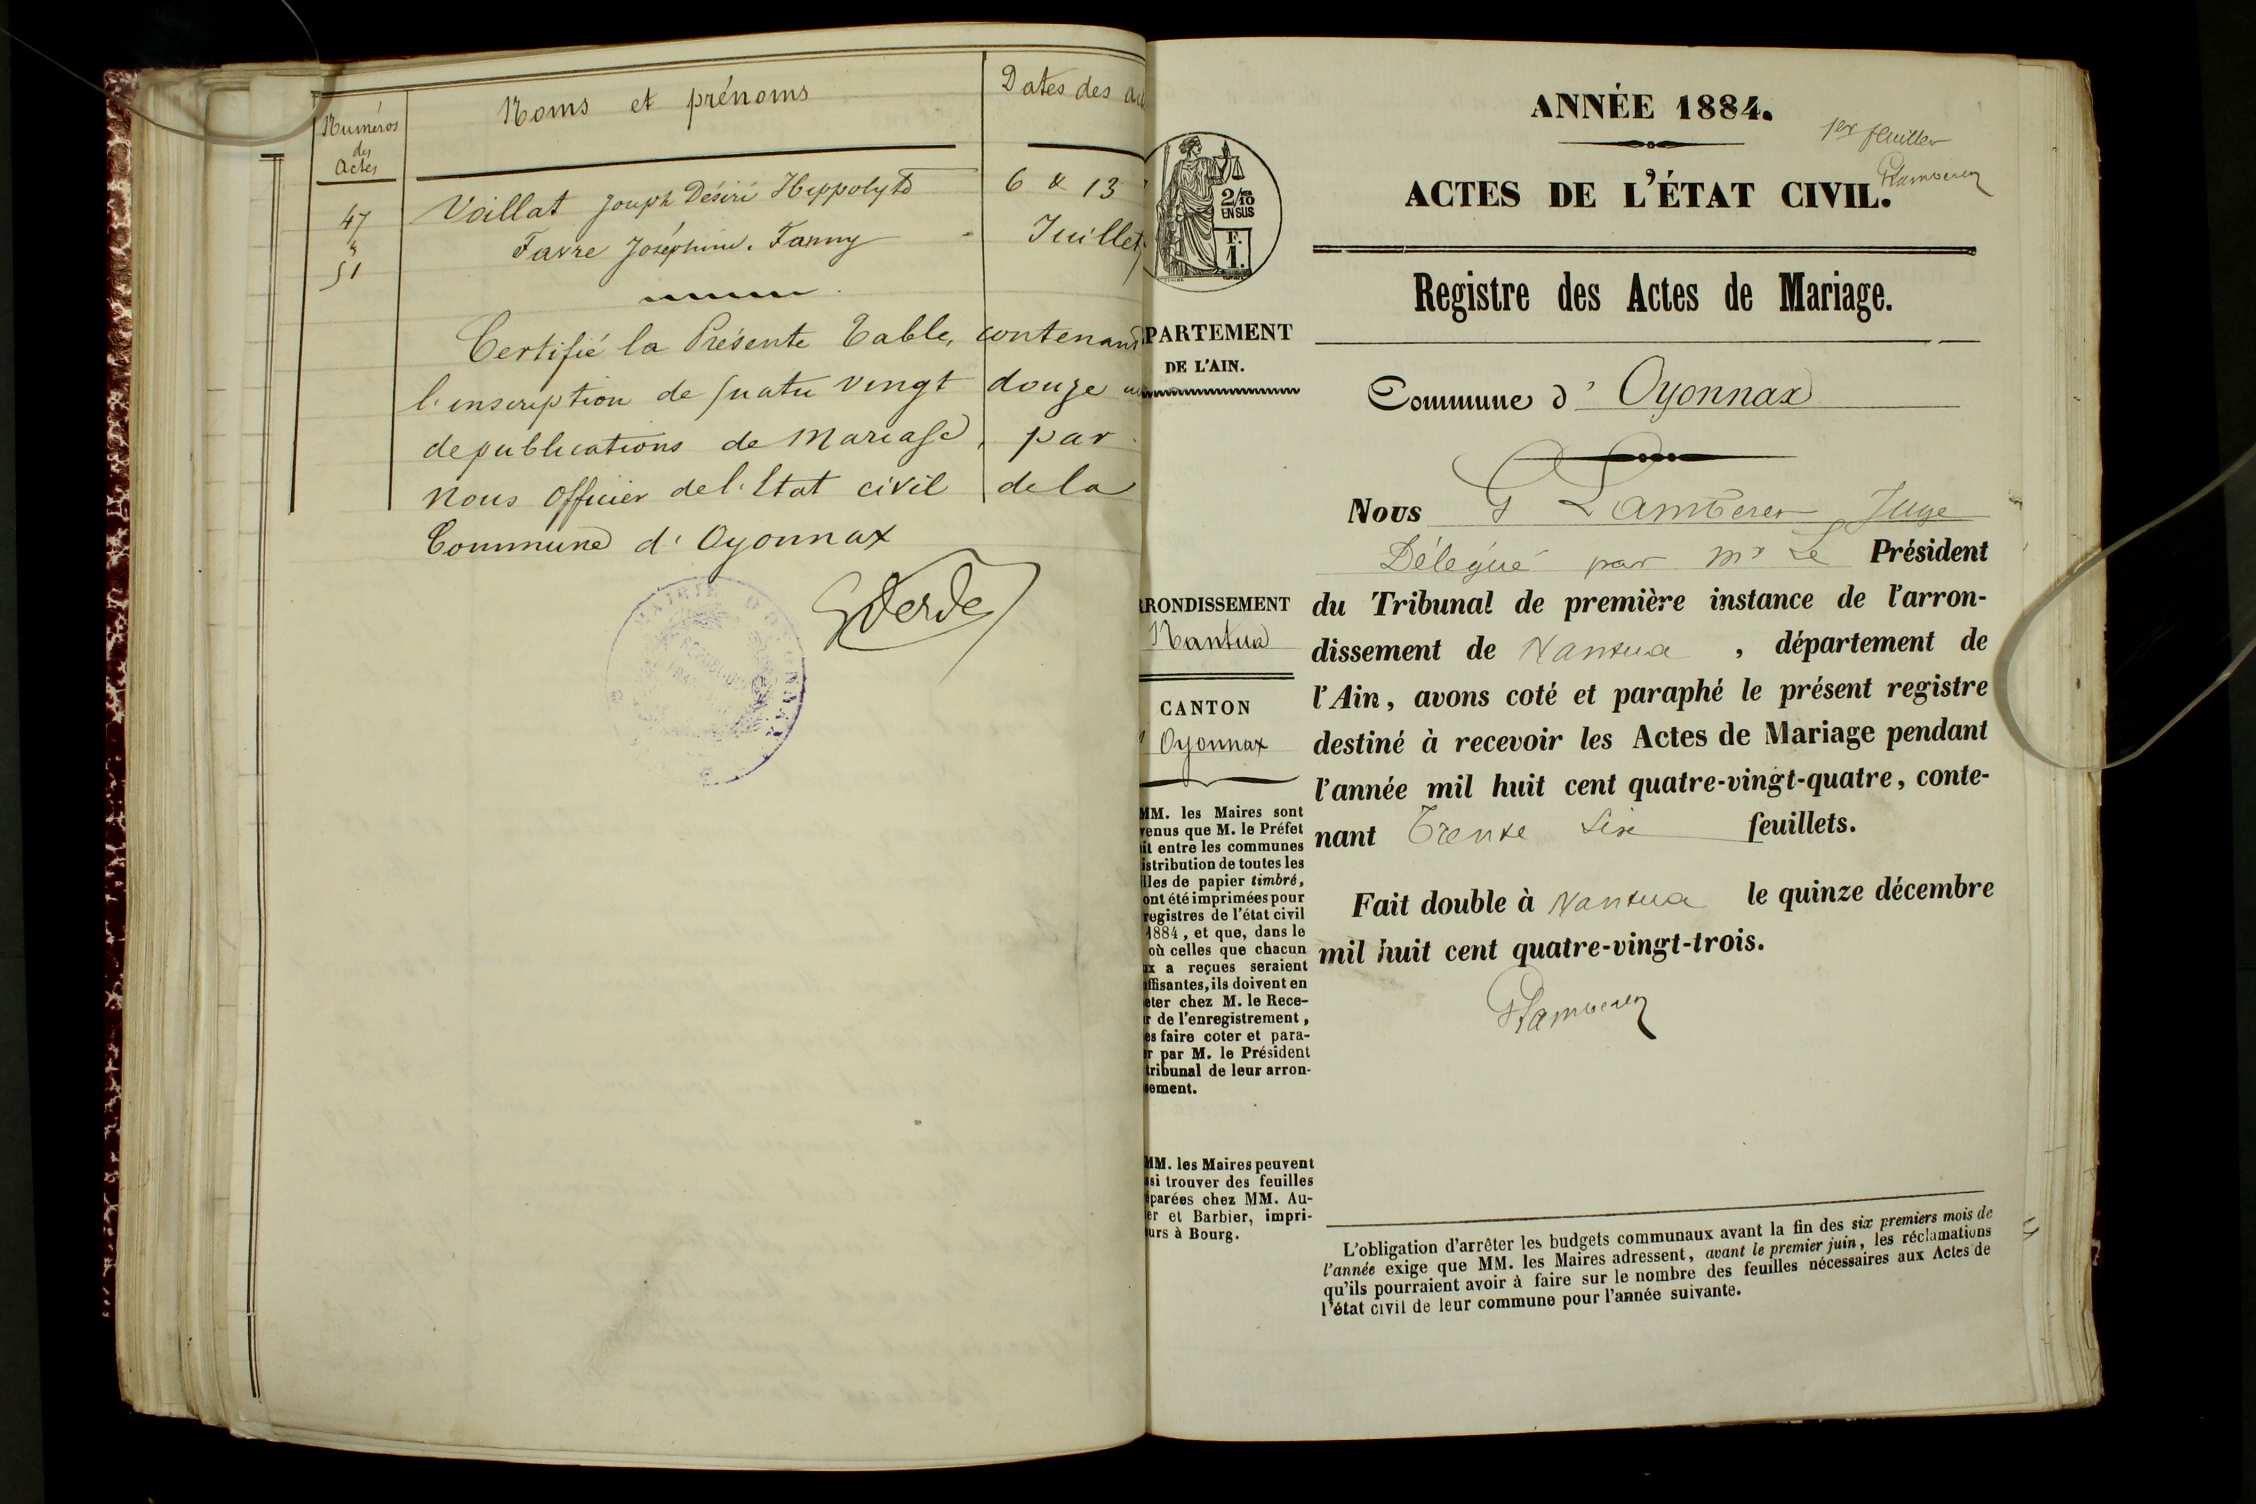 Numéros
des
Actes
Noms et prénoms
Dates des
47
&
51
Vaillat Joseph Désiré Hippolyte
6 & 13
Favre Joséphine. Fanny
Juillet
Certifié la Présente Table, contenant
l'inscription de quatre vingt douze
de publications de Mariage, par
nous officier de l'Etat civil de la
Commune d'Oyonnax
MAIRIE D'OYONNAX
ANNÉE 1884.
1er feuillet
ACTES DE L'ÉTAT CIVIL.
2/10
EN SUS
F.
1.
Registre des Actes de Mariage.
PARTEMENT
DE L'AIN.
Commune d'Oyonnax
Nous Juge
Délégué par Mr Le Président
du Tribunal de première instance de l'arron-
dissement de Nantua, département de
l'Ain, avons coté et paraphé le présent registre
destiné à recevoir les Actes de Mariage pendant
l'année mil huit cent quatre-vingt-quatre, conte-
nant Trente six feuillets.
Fait double à Nantua le quinze décembre
mil huit cent quatre-vingt-trois.
RONDISSEMENT
Nantua
CANTON
Oyonnax
MM. les Maires sont
venus que M. le Préfet
it entre les communes
istribution de toutes les
lles de papier timbré,
ont été imprimées pour
registres de l'état civil
1884, et que, dans le
où celles que chacun
x a reçues seraient
ffisantes, ils doivent en
eter chez M. le Rece-
r de l'enregistrement,
es faire coter et para-
r par M. le Président
tribunal de leur arron-
sement.
MM. les Maires peuvent
si trouver des feuilles
parées chez MM. Au-
er et Barbier, impri-
urs à Bourg.
L'obligation d'arrêter les budgets communaux avant la fin des six premiers mois de
l'année exige que MM. les Maires adressent, avant le premier juin, les réclamations
qu'ils pourraient avoir à faire sur le nombre des feuilles nécessaires aux Actes de
l'état civil de leur commune pour l'année suivante.